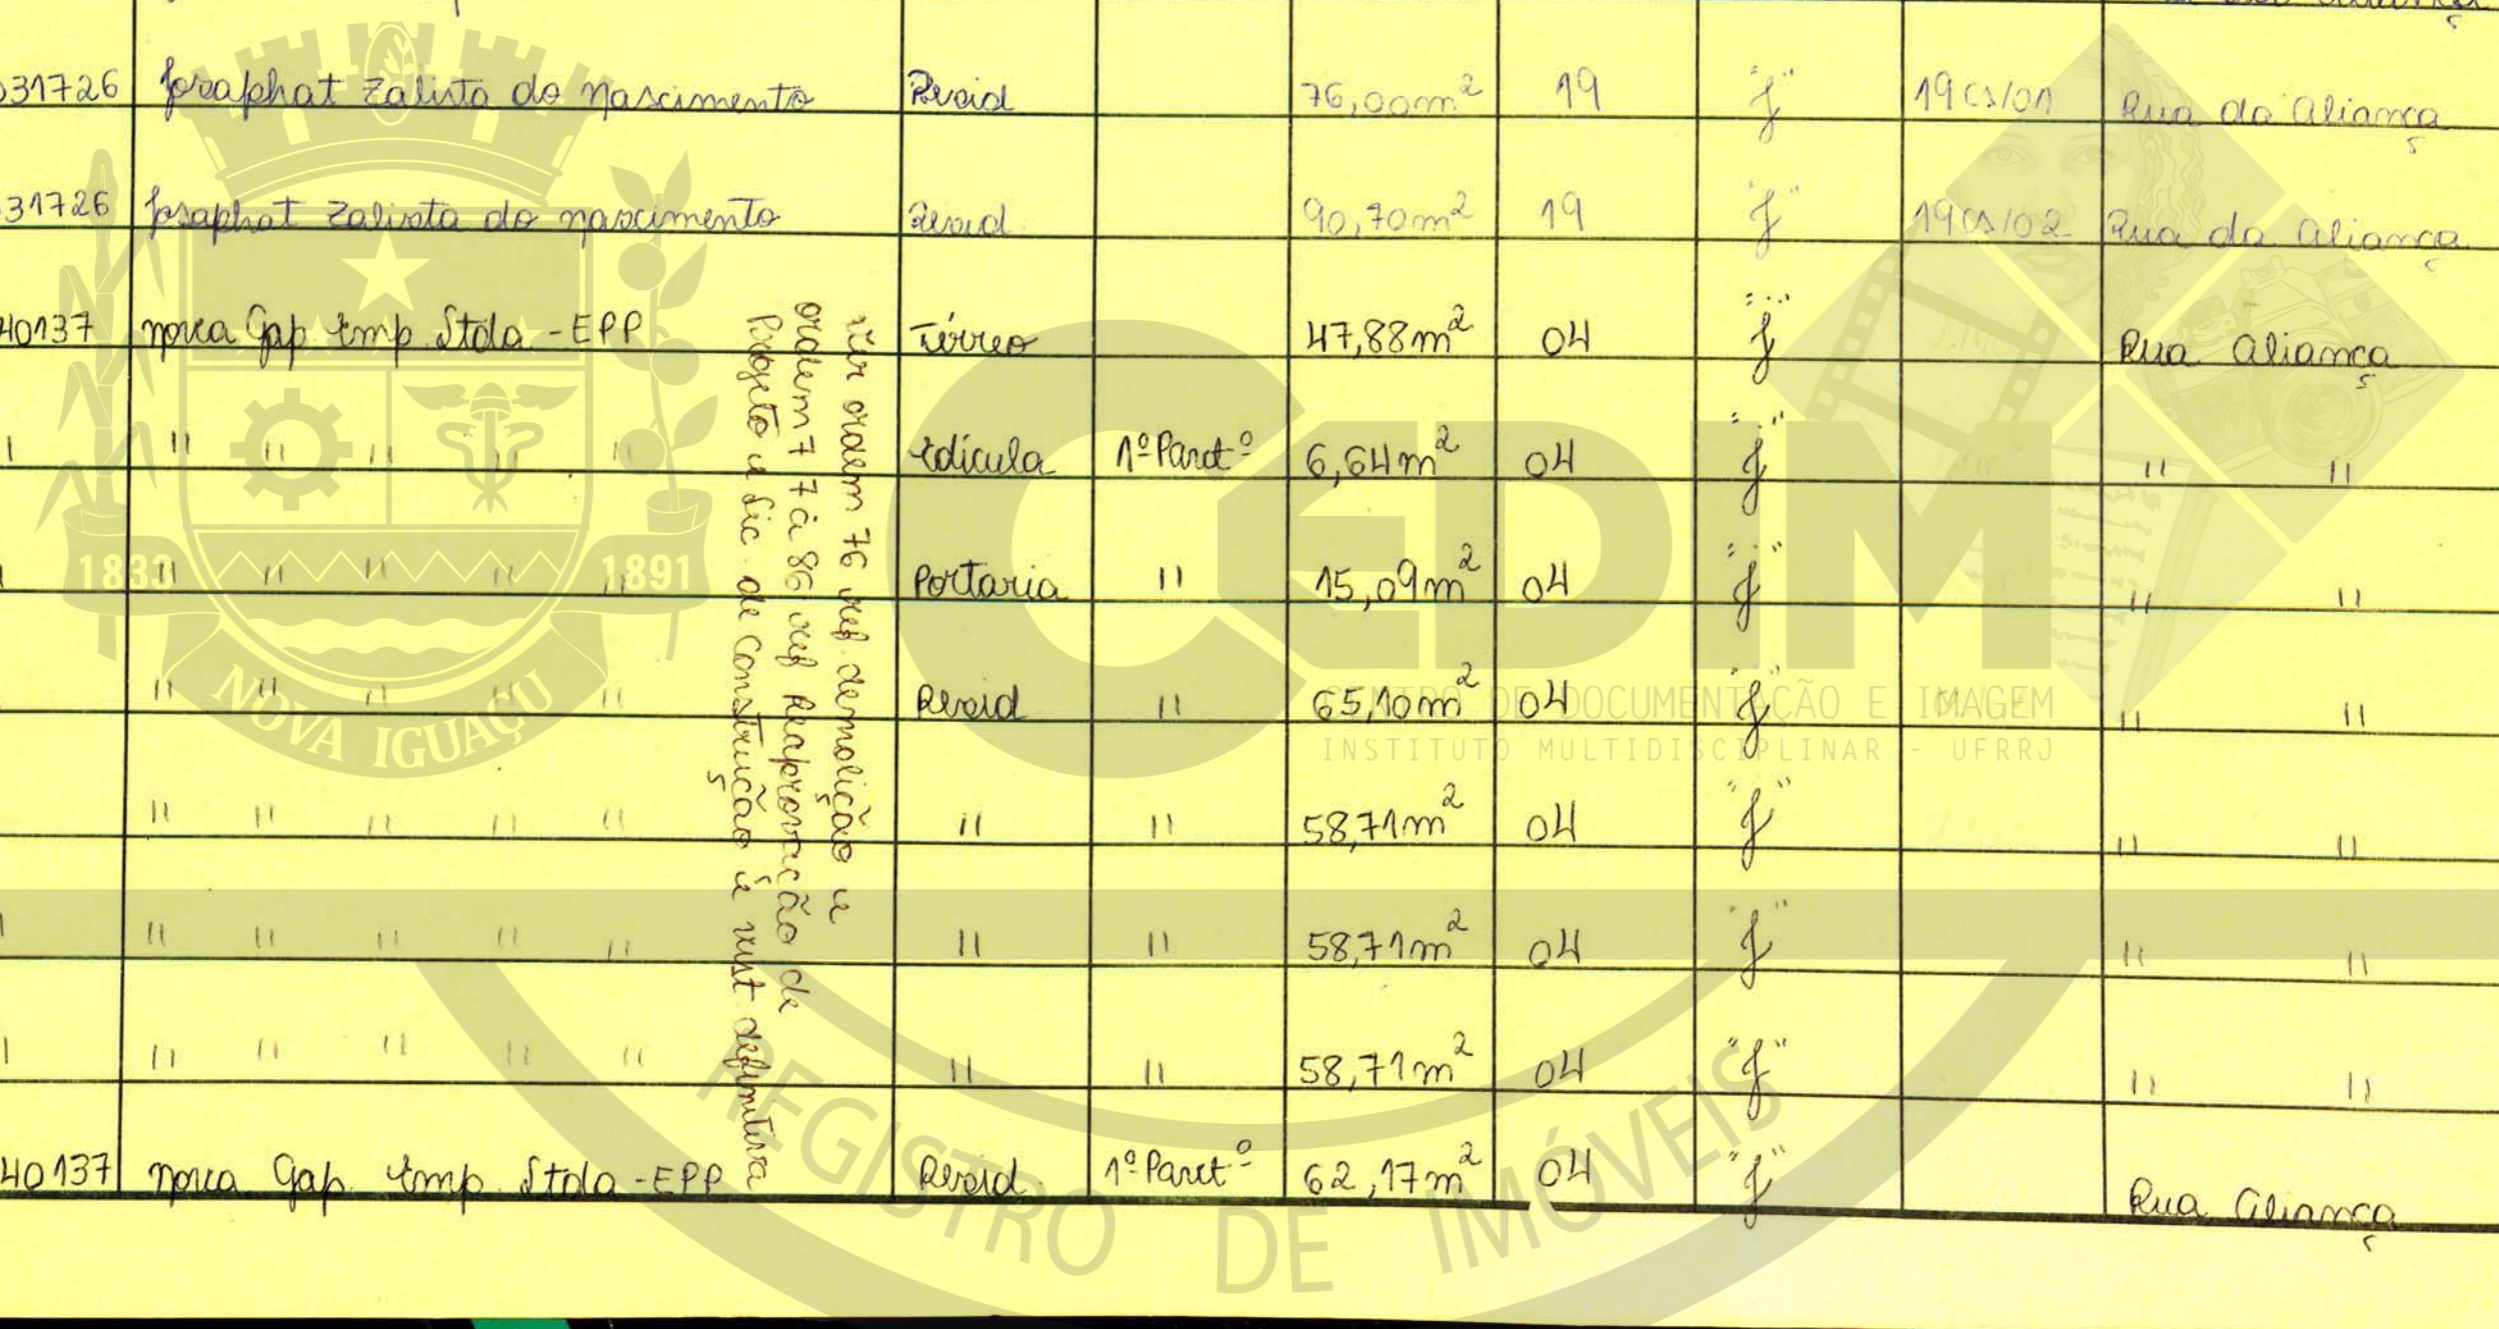 31726 Josaphat Zalista do nascimento Resid 76,00m² 19 "J" 19 cs/01 Rua da Aliança
31726 Josaphat Zalista do nascimento Resid. 90,70m² 19 "J" 19 cs/02 Rua da Aliança
40137 nova Gap Emp Ltda - EPP Térreo 47,88m² 04 "J" Rua Aliança
" " " " " Edicula 1º Paret º 6,64m² 04 "J" " "
" " " " " Portaria " 15,09m² 04 "J" " "
" " " " " Resid " 65,10m² 04 "J" " "
" " " " " " " 58,71m² 04 "J" " "
" " " " " " " 58,71m² 04 "J" " "
" " " " " " " 58,71m² 04 "J" " "
40137 nova Gap Emp Ltda - EPP Resid. 1º Paret º 62,17m² 04 "J" Rua Aliança
ver ordem 76 ref demolição e
ordem 77 à 86 ref Reaprovação de
Projeto e Lic. de Construção é vist definitiva
1833 1891
NOVA IGUAÇU
CEDIM
CENTRO DE DOCUMENTAÇÃO E IMAGEM
INSTITUTO MULTIDISCIPLINAR - UFRRJ
REGISTRO DE IMÓVEIS